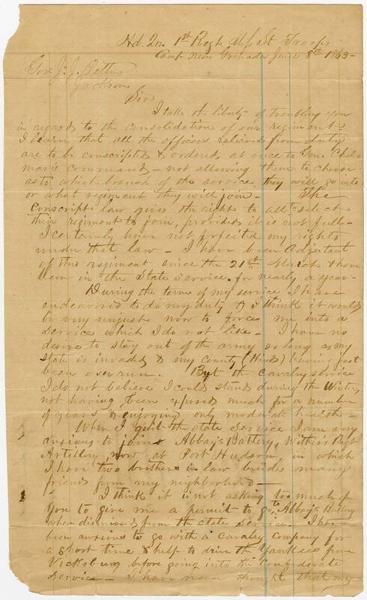 Hd. Qrs. 1st Regt. Miss. St. Troops
Camp Near Grenada June 8th 1863-
Gov. J. J. Pettus
Jackson
Sir
I take the liberty of troubling you
in regard to the consolidation of our regiments
I learn that all the officers relieved from duty
are to be conscripted & ordered at once to Gen. Chal-
mers command - not allowing them to choose
which branch of the service they will go into
or what regiment they will join - The
Conscript law gives the right to all to select
their regiment to join, provided it is not full -
I certainly have not forfeited my rights
under that law - I have been Adjutant
of this regiment since the 21st & have
been in the State service for nearly a year -
During the term of my service I have
endeavored to do my duty & I think it would
be very unjust now to force me into a
service which I do not like - I have no
desire to stay out of the army so long as my
State is invaded & my County (Hinds) having just
been overrun. But the cavalry service
I do not believe I could stand during the Winter,
not having been exposed much for a number
of years & enjoying only moderate health -
When I quit the State Service I am very
anxious to join Abbay's Battery, Withers' Regt
Artillery now at Port Hudson, in which
I have two brothers in law besides many
friends from my neighborhood -
I think it is not asking too much of
you to give me a permit to go to Abbay's Battery
when dismissed from the State service - I have
been anxious to go with a cavalry company for
a short time & help to drive the Yankees from
Vicksburg before going into the Confederate
Service - I have never thought that my